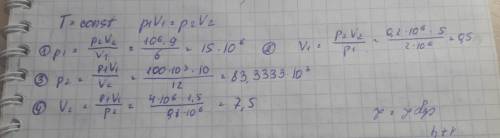 T = const    p₁V₁ = p₂V₂
① p₁ = p₂V₂/V₁ = 10⁶·9/6 = 15·10⁶    ② V₁ = p₂V₂/p₁ = 0,2·10⁶·5/2·10⁶ = 0,5
③ p₂ = p₁V₁/V₂ = 100·10³·10/12 = 83,3333·10³
④ V₂ = p₁V₁/p₂ = 4·10⁶·1,5/0,8·10⁶ = 7,5